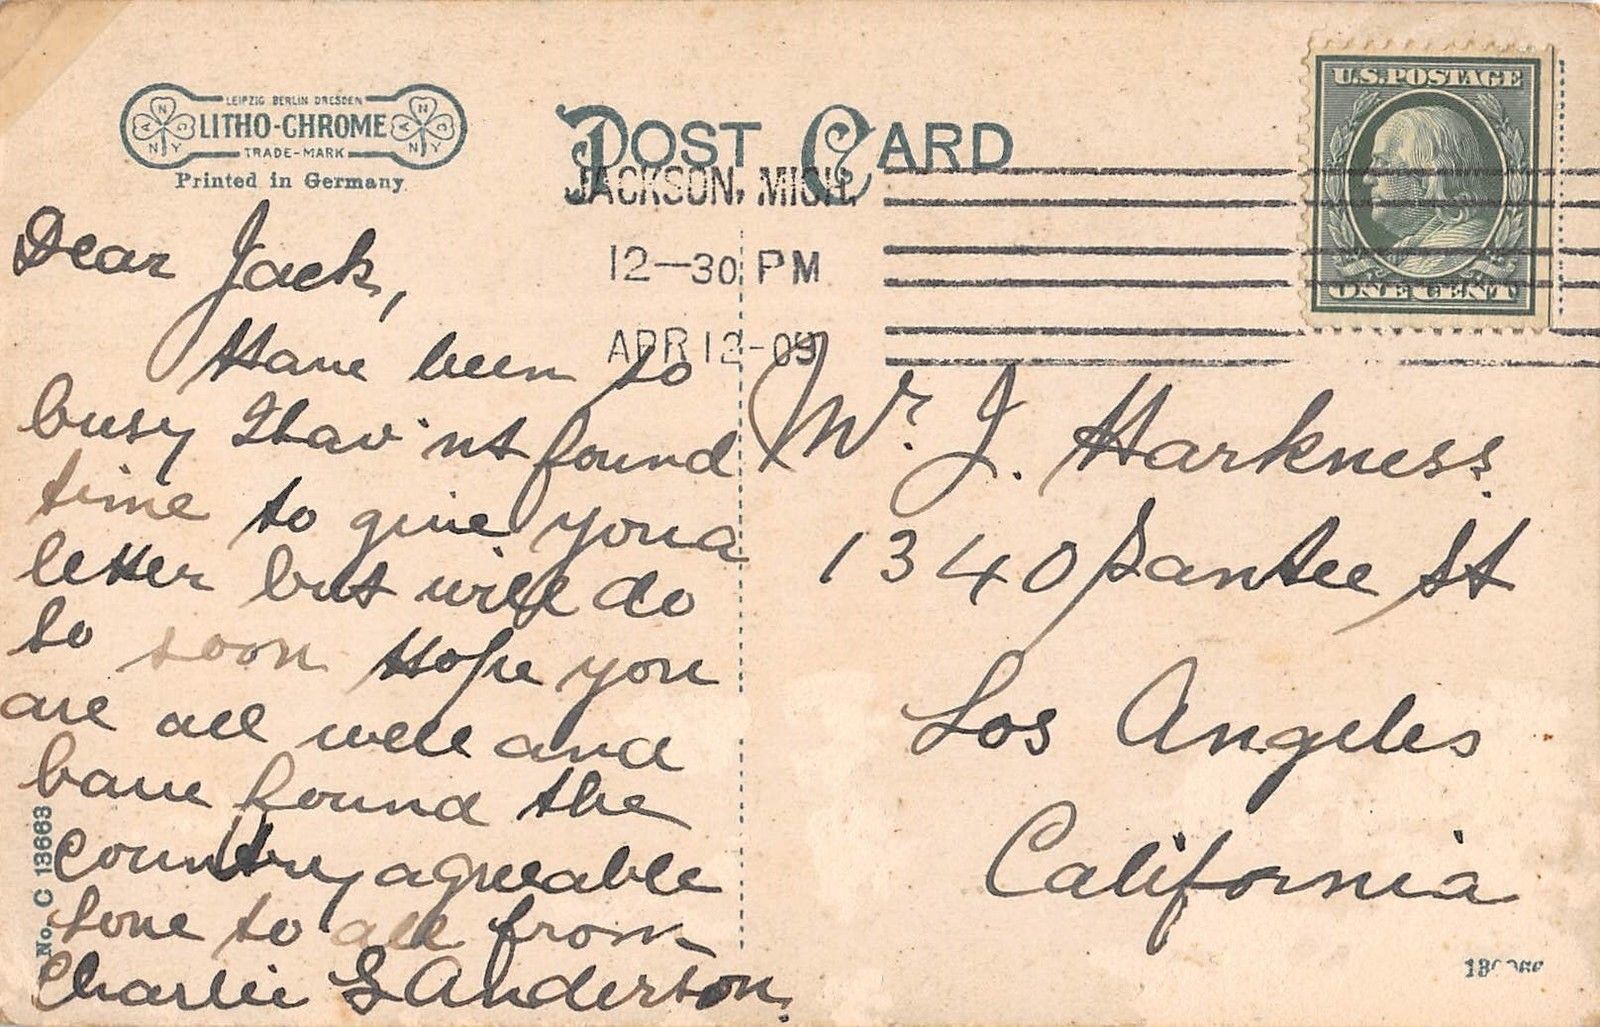 LEIPZIG BERLIN DRESDEN
LITHO-CHROME
TRADE-MARK
Printed in Germany
POST CARD
U.S. POSTAGE
ONE CENT
JACKSON, MICH.
12-30 PM
APR 12-09
Dear Jack,
Have been so
busy I hav'nt found
time to give you a
letter but will do
so soon Hope you
are all well and
have found the
country agreeable
Love to all from
Charlie G Anderson.
Mr. J. Harkness.
1340 Santee St
Los Angeles
California
No. C 13663